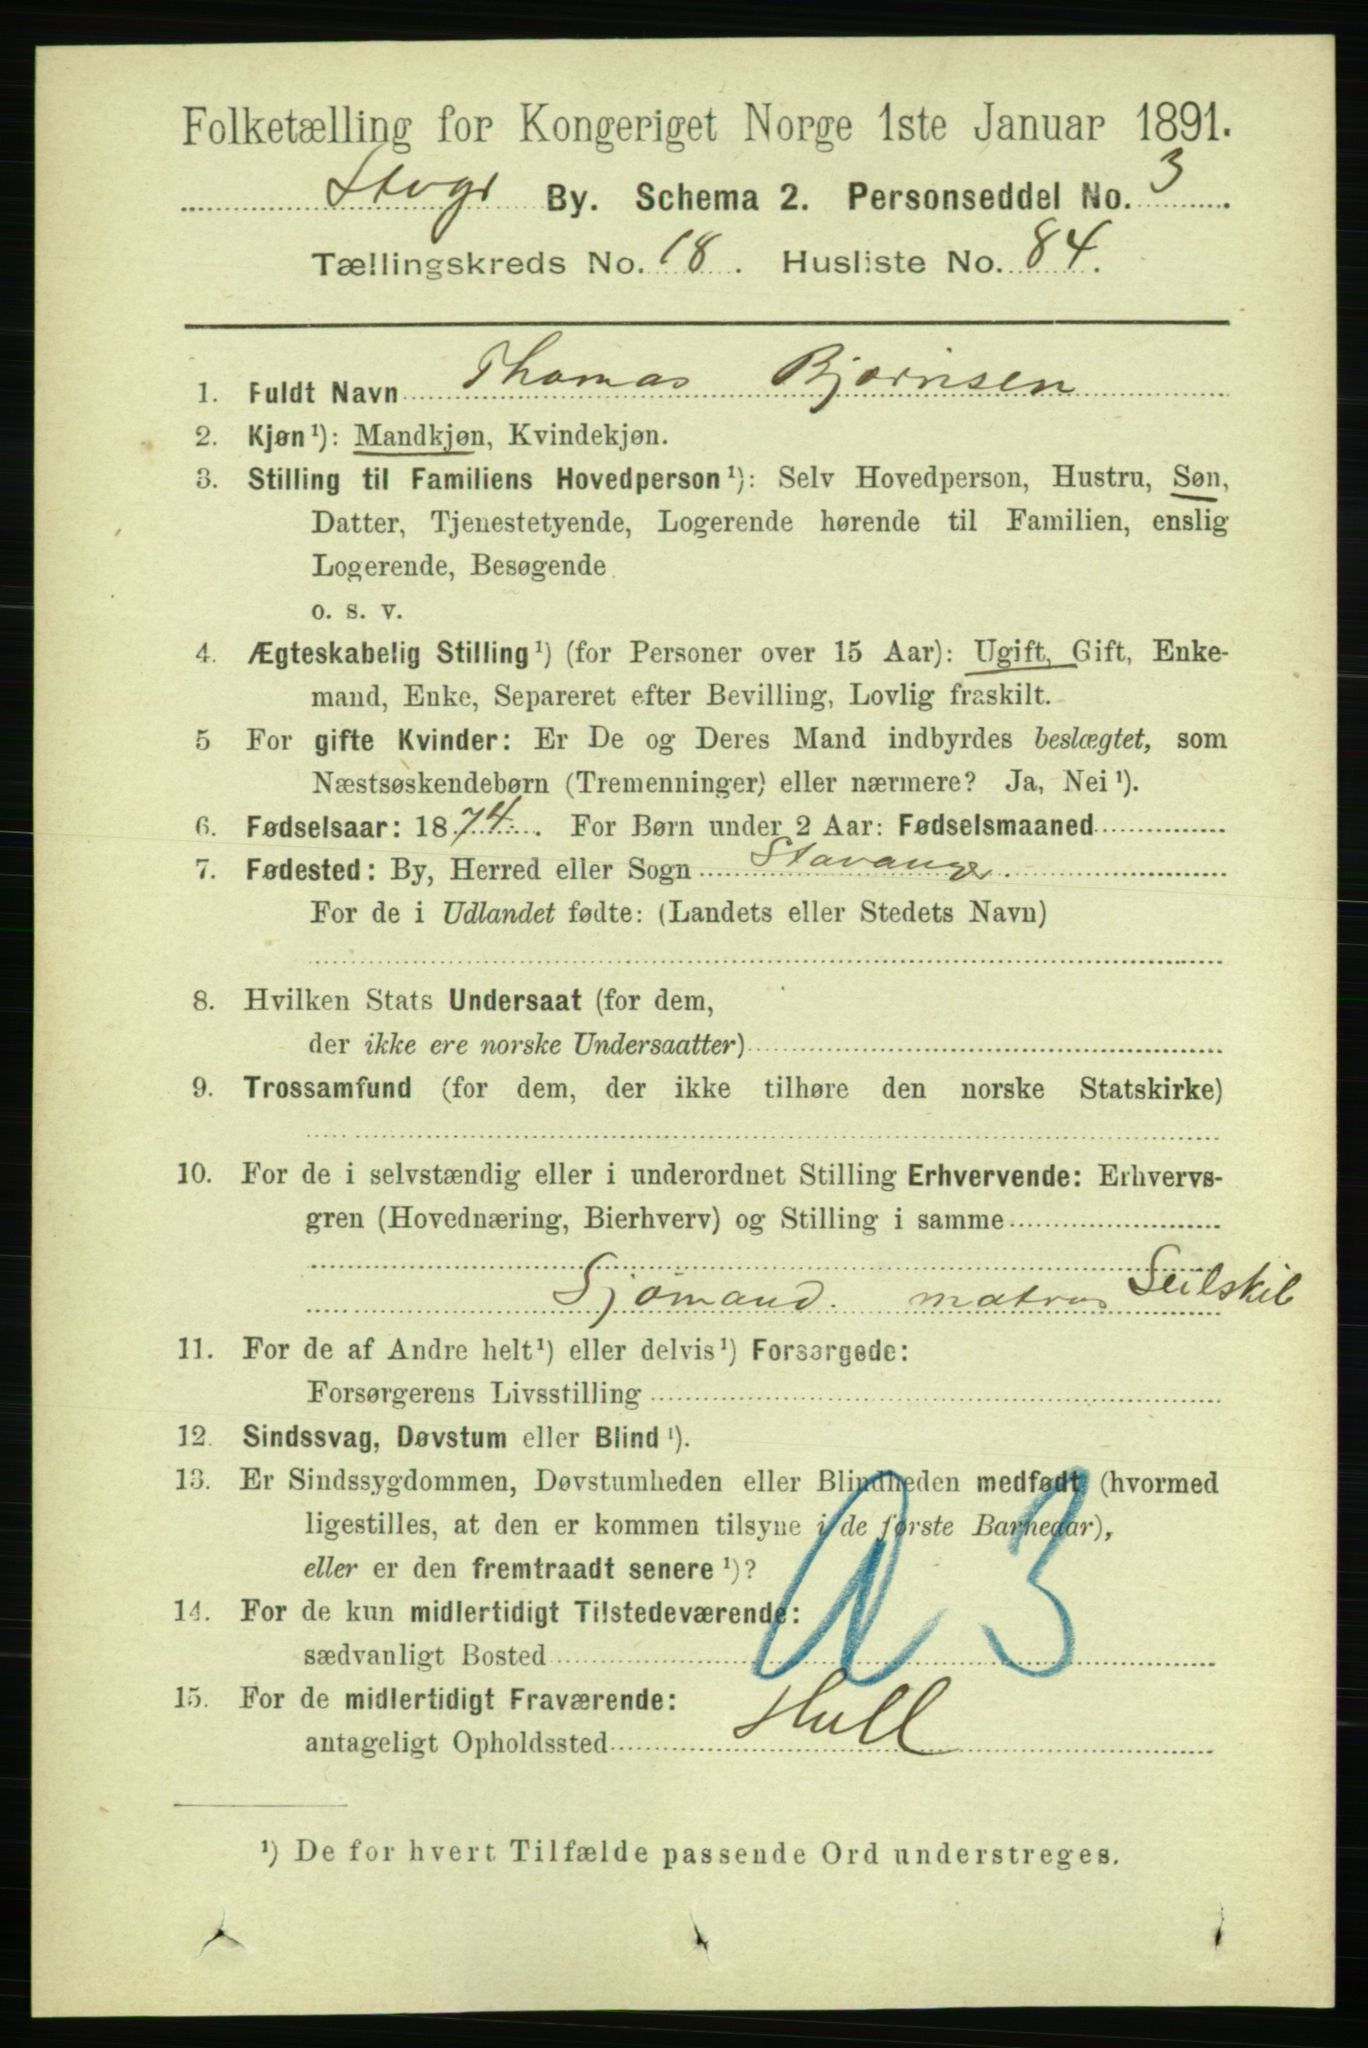 Folketælling for Kongeriget Norge 1ste Januar 1891.
Stvgr By. Schema 2. Personseddel No. 3.
Tællingskreds No. 18. Husliste No. 84.
1. Fuldt Navn Thomas Bjørnsen
2. Kjøn¹): Mandkjøn, Kvindekjøn.
3. Stilling til Familiens Hovedperson¹): Selv Hovedperson, Hustru, Søn,
Datter, Tjenestetyende, Logerende hørende til Familien, enslig
Logerende, Besøgende
o. s. v.
4. Ægteskabelig Stilling¹) (for Personer over 15 Aar): Ugift, Gift, Enke-
mand, Enke, Separeret efter Bevilling, Lovlig fraskilt.
5 For gifte Kvinder: Er De og Deres Mand indbyrdes beslægtet, som
Næstsøskendebørn (Tremenninger) eller nærmere? Ja, Nei¹).
6. Fødselsaar: 1874. For Børn under 2 Aar: Fødselsmaaned
7. Fødested: By, Herred eller Sogn Stavanger.
For de i Udlandet fødte: (Landets eller Stedets Navn)
8. Hvilken Stats Undersaat (for dem,
der ikke ere norske Undersaatter)
9. Trossamfund (for dem, der ikke tilhøre den norske Statskirke)
10. For de i selvstændig eller i underordnet Stilling Erhvervende: Erhvervs-
gren (Hovednæring, Bierhverv) og Stilling i samme
Sjømand. matros Seilskib
11. For de af Andre helt¹) eller delvis¹) Forsørgede:
Forsørgerens Livsstilling
12. Sindssvag, Døvstum eller Blind¹).
13. Er Sindssygdommen, Døvstumheden eller Blindheden medfødt (hvormed
ligestilles, at den er kommen tilsyne i de første Barneaar),
eller er den fremtraadt senere¹)?
14. For de kun midlertidigt Tilstedeværende:
sædvanligt Bosted
15. For de midlertidigt Fraværende:
antageligt Opholdssted Hull
¹) De for hvert Tilfælde passende Ord understreges.